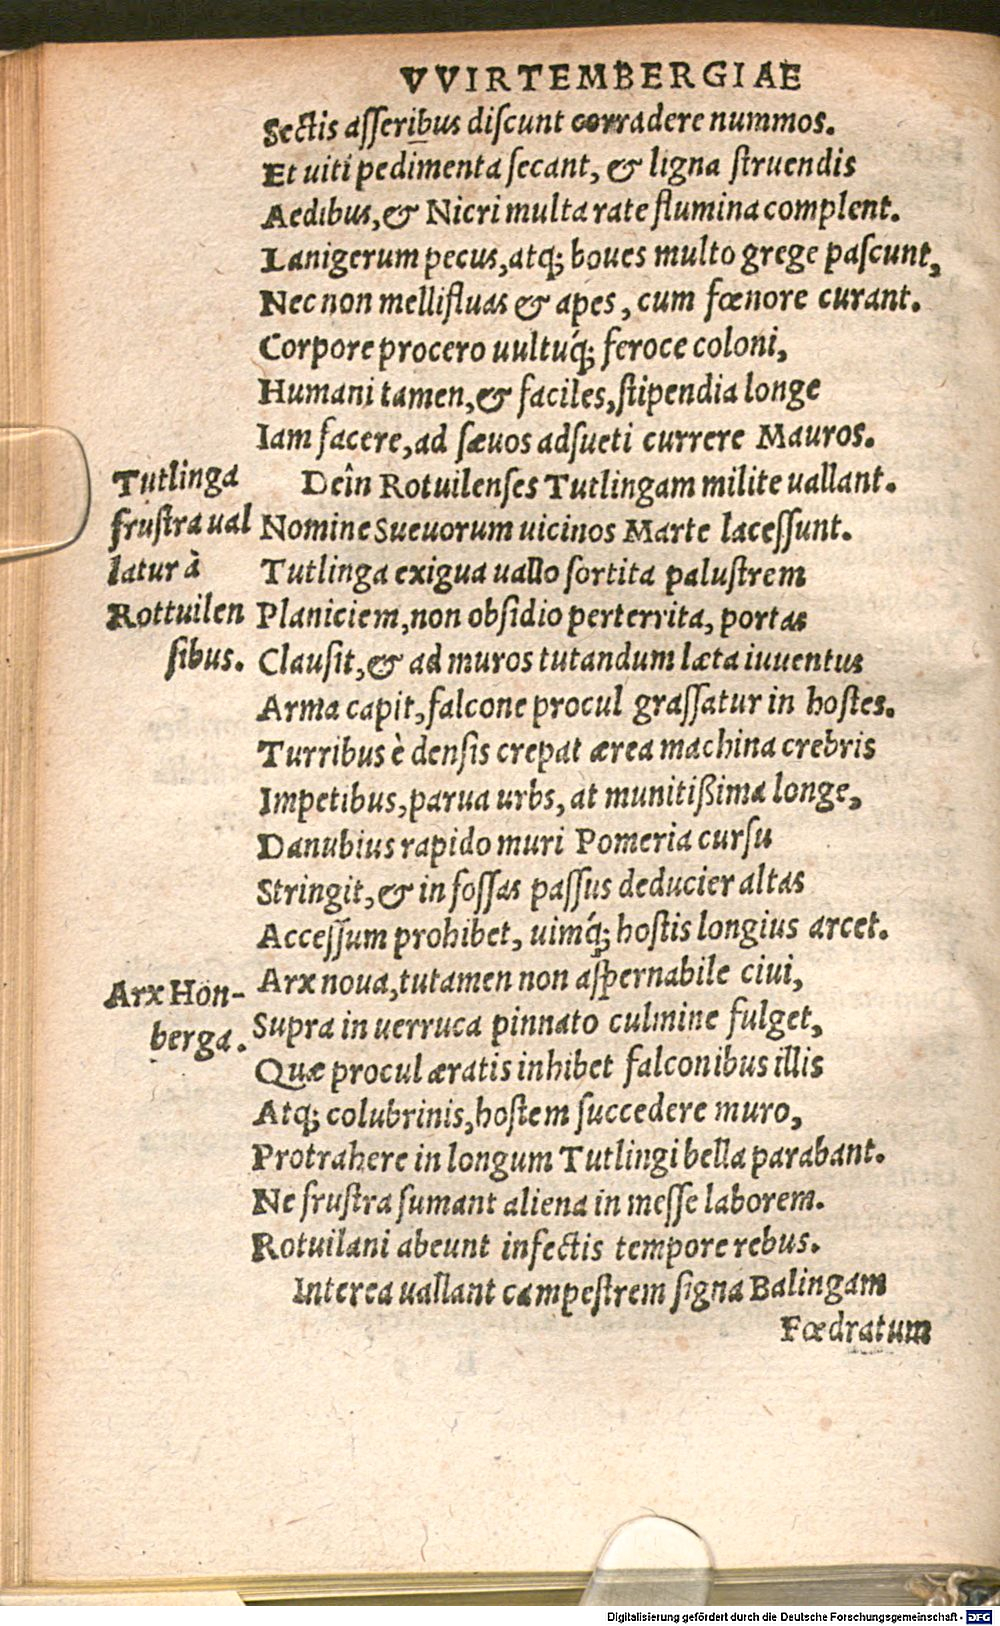 VVIRTEMBERGIAE
Sectis aſſeribus diſcunt corradere nummos.
Et uiti pedimenta ſecant, & ligna ſtruendis
Aedibus, & Nicri multa rate flumina complent.
Lanigerum pecus, atq; boues multo grege paſcunt,
Nec non mellifluas & apes, cum fœnore curant.
Corpore procero uultuq́; feroce coloni,
Humani tamen, & faciles, ſtipendia longe
Iam facere, ad ſæuos adſueti currere Mauros.
Tutlinga
fruſtra ual
latur à
Rottuilen
ſibus.
Deîn Rotuilenſes Tutlingam milite uallant.
Nomine Sueuorum uicinos Marte laceſſunt.
Tutlinga exigua uallo ſortita paluſtrem
Planiciem, non obſidio perterrita, portas
Clauſit, & ad muros tutandum læta iuuentus
Arma capit, falcone procul graſſatur in hoſtes.
Turribus è denſis crepat ærea machina crebris
Impetibus, parua urbs, at munitißima longe,
Danubius rapido muri Pomeria curſu
Stringit, & in foſſas paſſus deducier altas
Acceſſum prohibet, uimq́; hoſtis longius arcet.
Arx Hon-
berga.
Arx noua, tutamen non aſpernabile ciui,
Supra in uerruca pinnato culmine fulget,
Quæ procul æratis inhibet falconibus illis
Atq; colubrinis, hoſtem ſuccedere muro,
Protrahere in longum Tutlingi bella parabant.
Ne fruſtra ſumant aliena in meſſe laborem.
Rotuilani abeunt infectis tempore rebus.
Interea uallant campeſtrem ſigna Balingam
Fœdratum
Digitalisierung gefördert durch die Deutsche Forschungsgemeinschaft - DFG